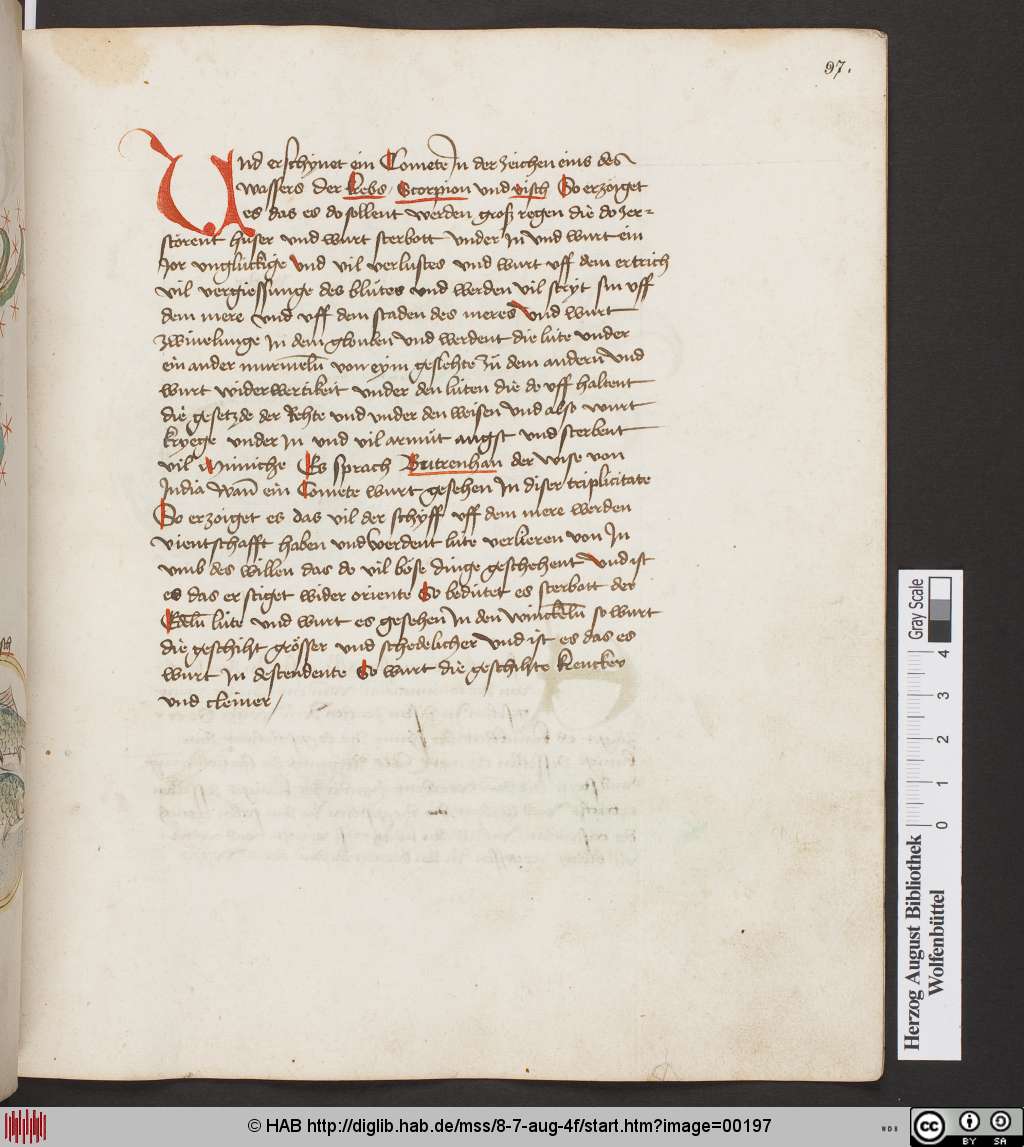 97.
Und erschynet ein Comete In der zeichen eins des
wassers der krebs / Scorpion und visch So erzoiget
es das es do sollent werden groß regen die do zer=
störent hüser und wurt sterbott under In und wurt ein
Jor unglückige und vil verlustes und wurt uff dem ertrich
vil vergiessunge des blütes und werden vil stryt sin uff
dem mere und uff dem staden des meres und wurt
zwivelunge In dem glouben und werdent die lüte under
ein ander murmeln von eym geslehte zü dem andern und
wurt widerwertikeit under den lüten die do uff haltent
die gesetzde der Rehte und under den weisen und also wurt
kryege under In und vil armüt angst und sterbent
vil Es sprach Butrenhan der wise von
India Wan ein Comete wurt gesehen In diser triplicitate
So erzoiget es das vil der schyff uff dem mere werden
vientschafft haben und werdent lüte verlieren von In
umb des willen das do vil böse dinge geschehent und ist
es das er stiget wider oriente So bedütet es sterbott der
Edeln lüte und wurt es gesehen In den winckeln so wurt
die geschiht grösser und schedelicher und ist es das es
wurt In descendente So wurt die geschihte krencker
und cleiner /
Gray Scale
0 1 2 3 4
Herzog August Bibliothek
Wolfenbüttel
© HAB http://diglib.hab.de/mss/8-7-aug-4f/start.htm?image=00197
WDB
cc BY SA